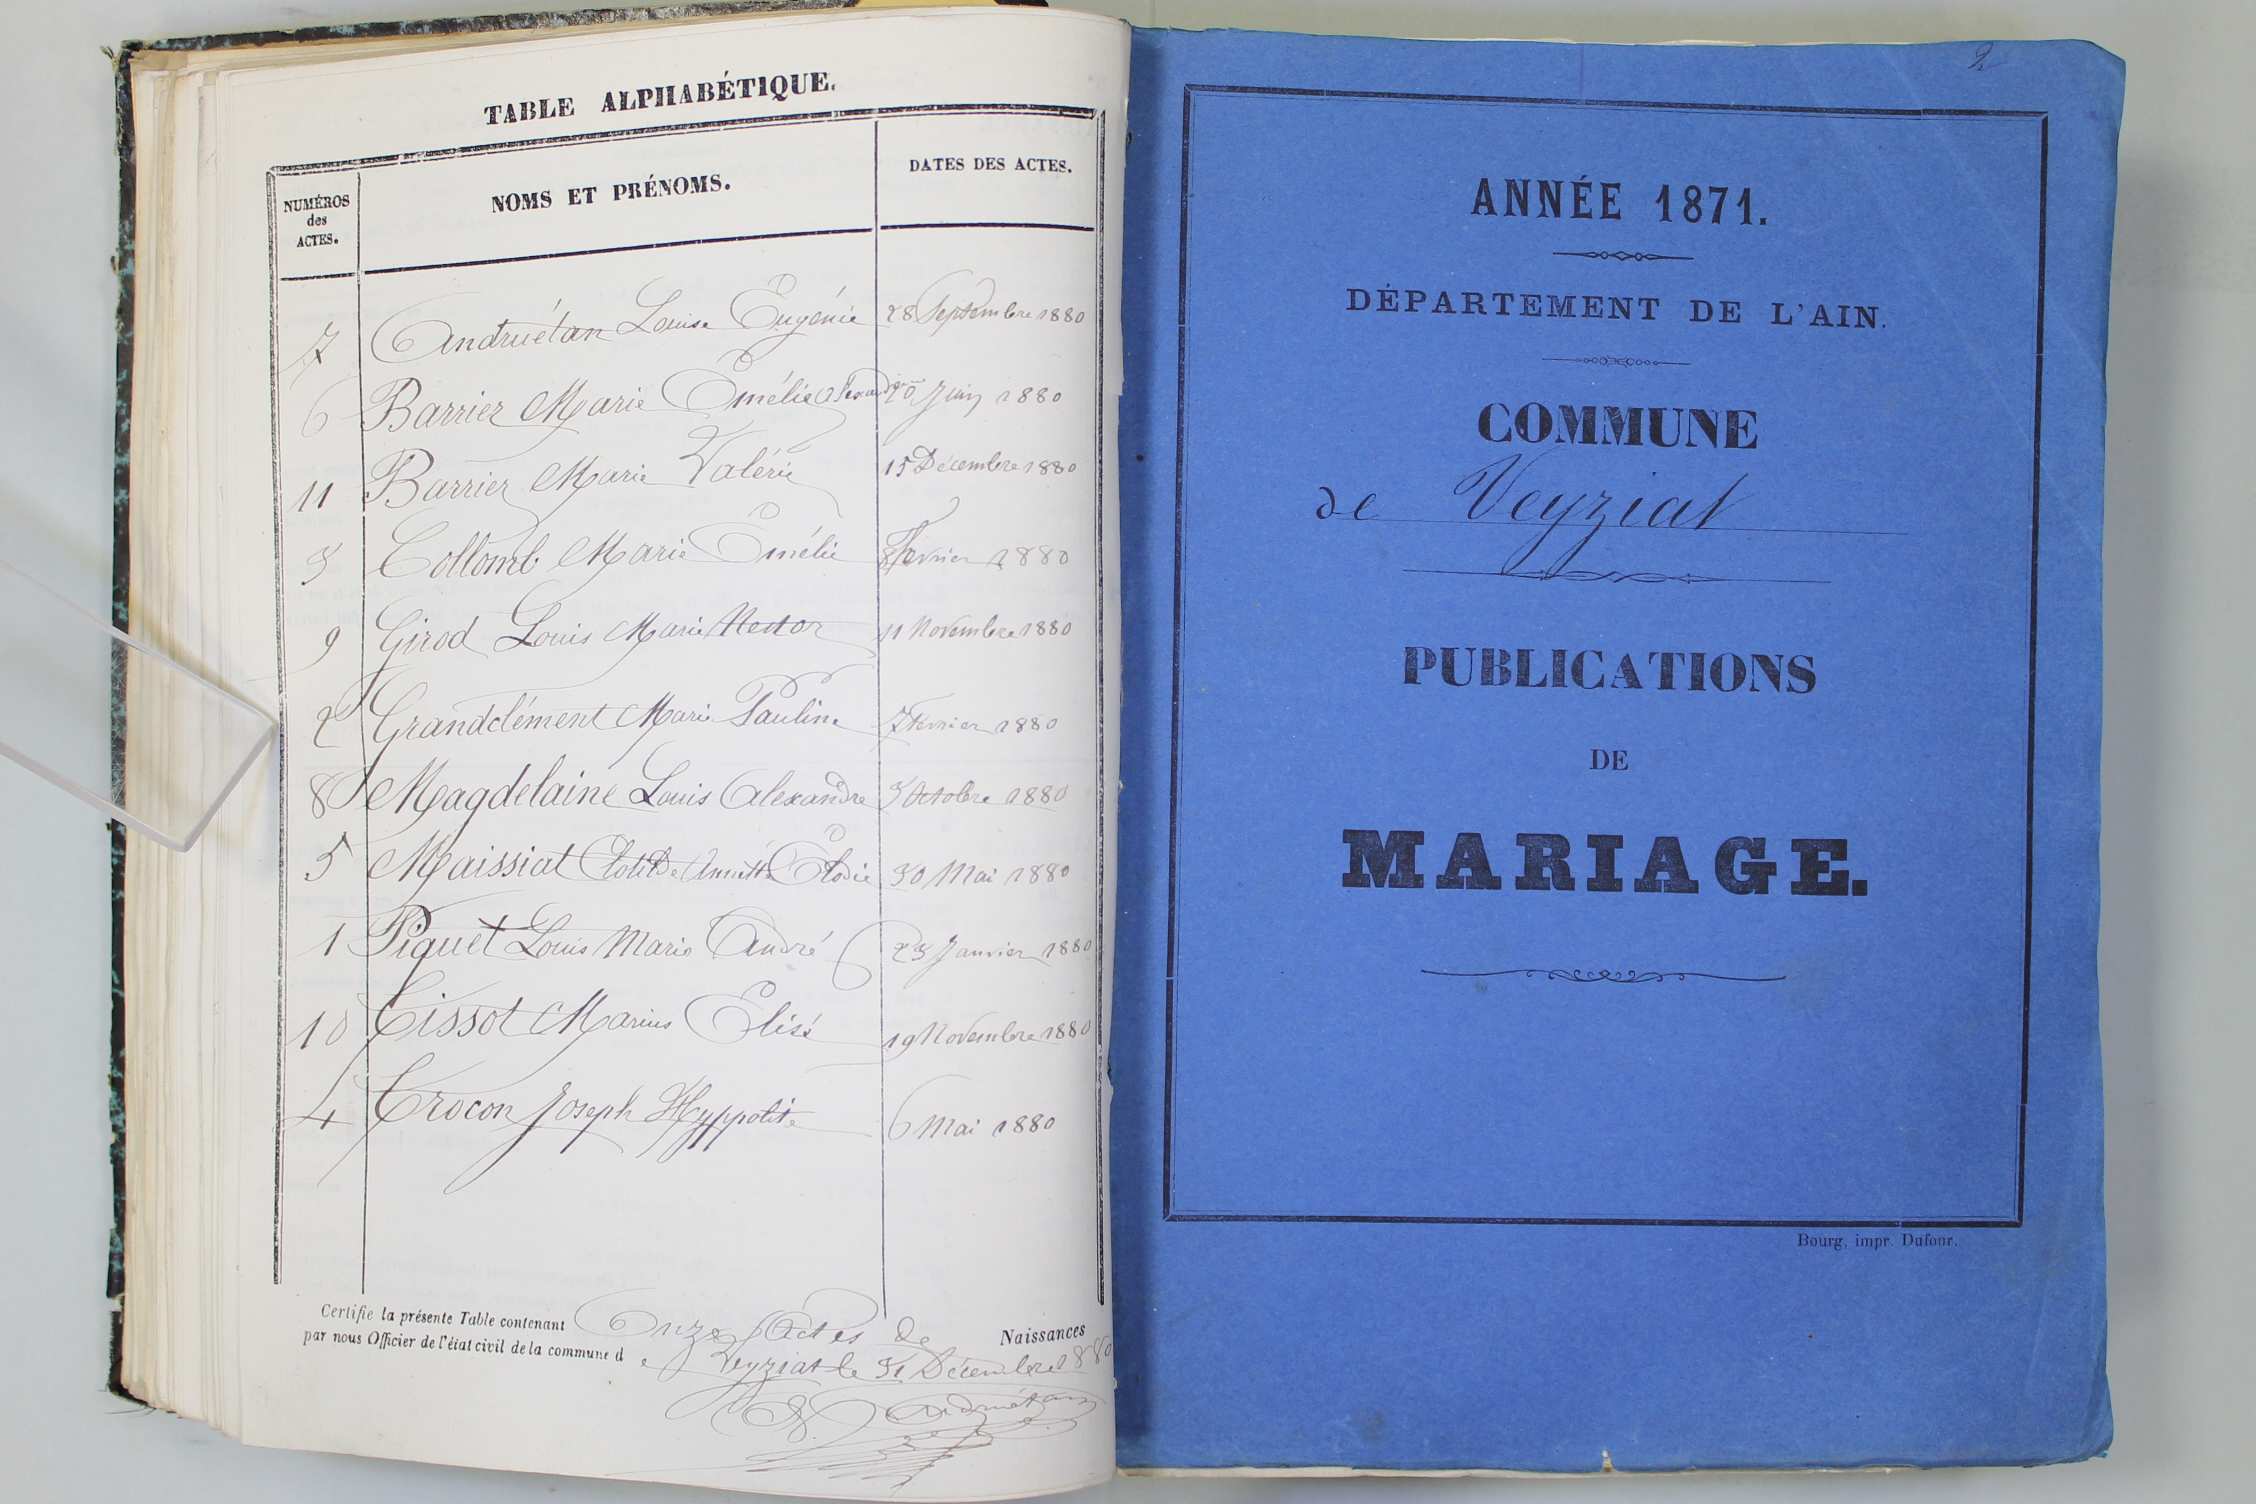 TABLE ALPHABÉTIQUE.
NUMÉROS
des
ACTES.
NOMS ET PRÉNOMS.
DATES DES ACTES.
7 Andruétan Louise Eugénie 28 Septembre 1880
6 Barrier Marie Emélie 20 Juin 1880
11 Barrier Marie Valérie 15 Décembre 1880
3 Collomb Marie Emélie 8 Fevrier 1880
9 Girod Louis Marie Nestor 11 Novembre 1880
2 Grandclément Marie Pauline 7 Fevrier 1880
8 Magdelaine Louis Alexandre 3 Octobre 1880
5 Maissiat Clotilde Annette Elodie 30 Mai 1880
1 Piquet Louis Marie André 23 Janvier 1880
10 Tissot Marius Elisé 19 Novembre 1880
4 Crocon Joseph Hyppolite 6 Mai 1880
Certifie la présente Table contenant Onze Actes de Naissances
par nous Officier de l'état civil de la commune de Veyziat le 31 Décembre 1880
Andruétan
2
ANNÉE 1871.
DÉPARTEMENT DE L'AIN.
COMMUNE
de Veyziat
PUBLICATIONS
DE
MARIAGE.
Bourg, impr. Dufour.